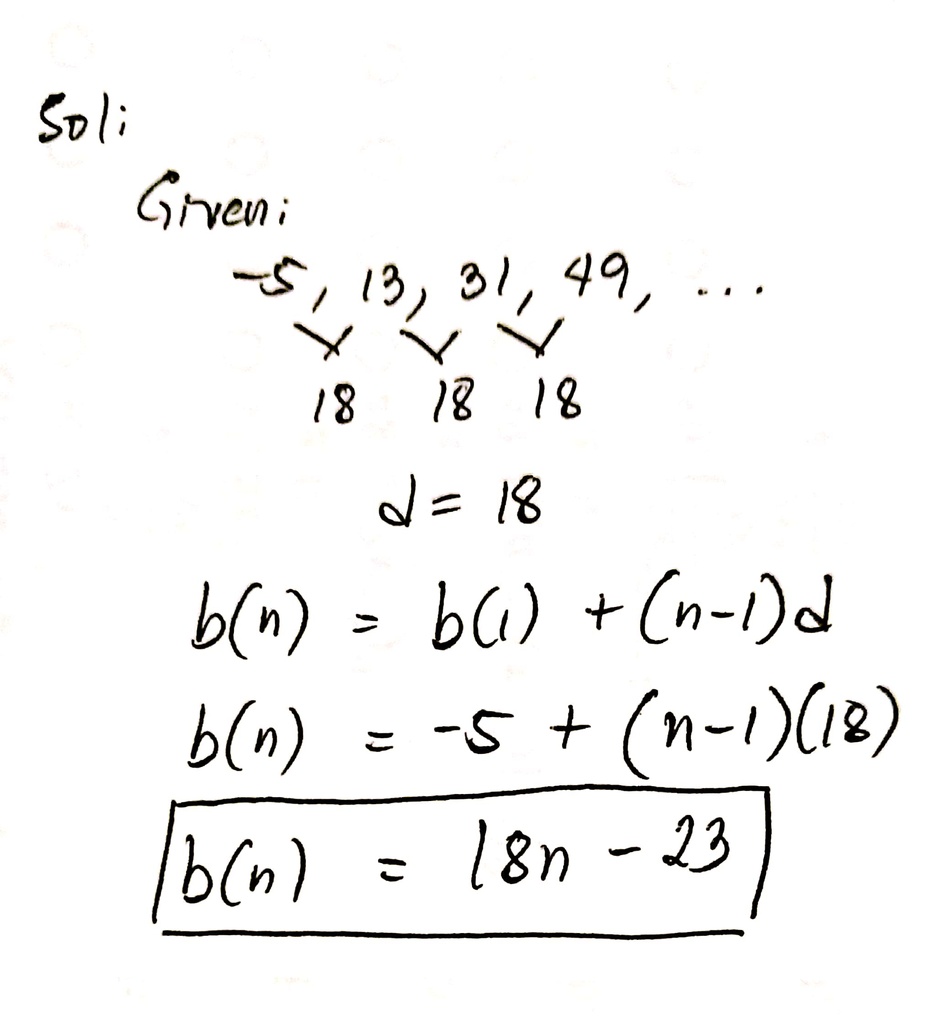 Sol:
Given:
-5, 13, 31, 49, ...
18 18 18
d = 18
b(n) = b(1) + (n-1)d
b(n) = -5 + (n-1)(18)
b(n) = 18n - 23